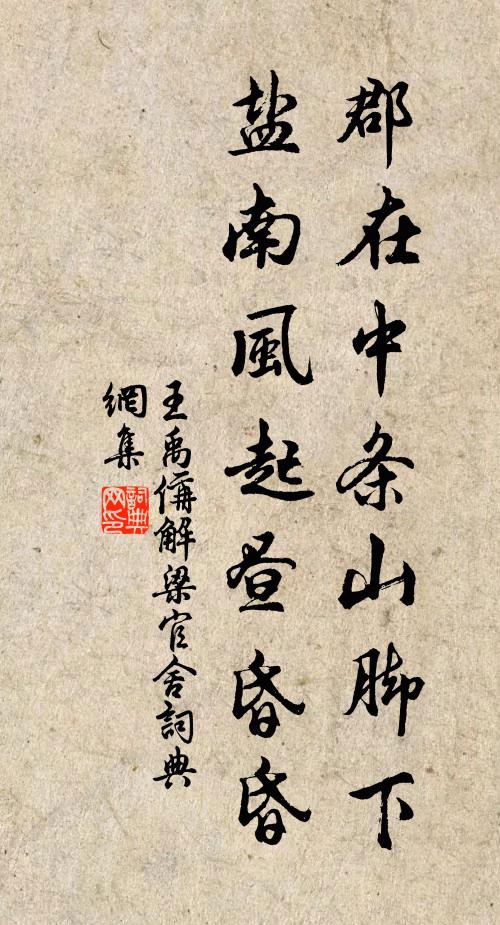 郡在中条山脚下
盐南風起昼昏昏
王禹偁解梁官舍詞典
網集
詞典網印